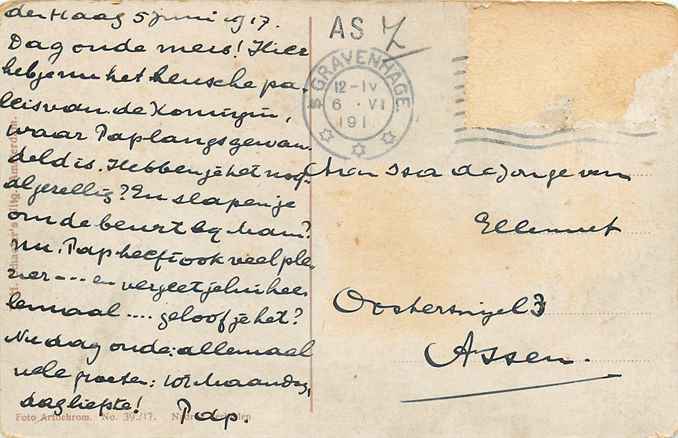 den Haag 5 juni 1917.
Dag oude mens! Hier
heb je nu het heusche pa-
leis van de Koningin,
waar Pap langs gewan-
deld is. Hebben je het nog
al gezellig? En slapen je
om de beurt bij Mam?
nu, Pap heeft ook veel ple-
zier --- en vergeet jelui hee-
lemaal .... geloof je het?
Nu dag oude: allemaal
vele groeten: tot Maandag,
dag liefste! Pap.
AS 7
'S GRAVENHAGE
12-IV
6 · VI
191
Aan Isa de Jonge van
Ellemeet
Oostersingel 3
Assen.
Foto Artochrom. No. 39717.